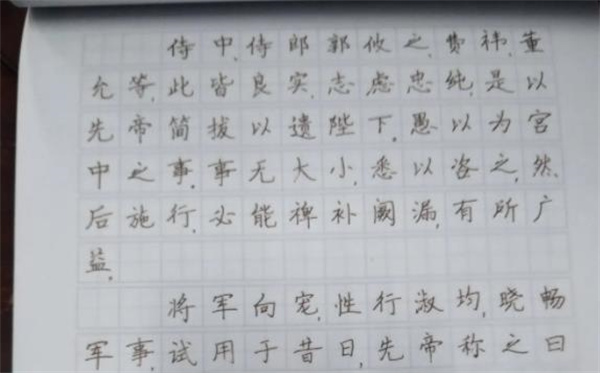 侍中、侍郎郭攸之、费祎、董
允等,此皆良实,志虑忠纯,是以
先帝简拔以遗陛下,愚以为宫
中之事,事无大小,悉以咨之,然
后施行,必能裨补阙漏,有所广
益。
将军向宠,性行淑均,晓畅
军事,试用于昔日,先帝称之曰